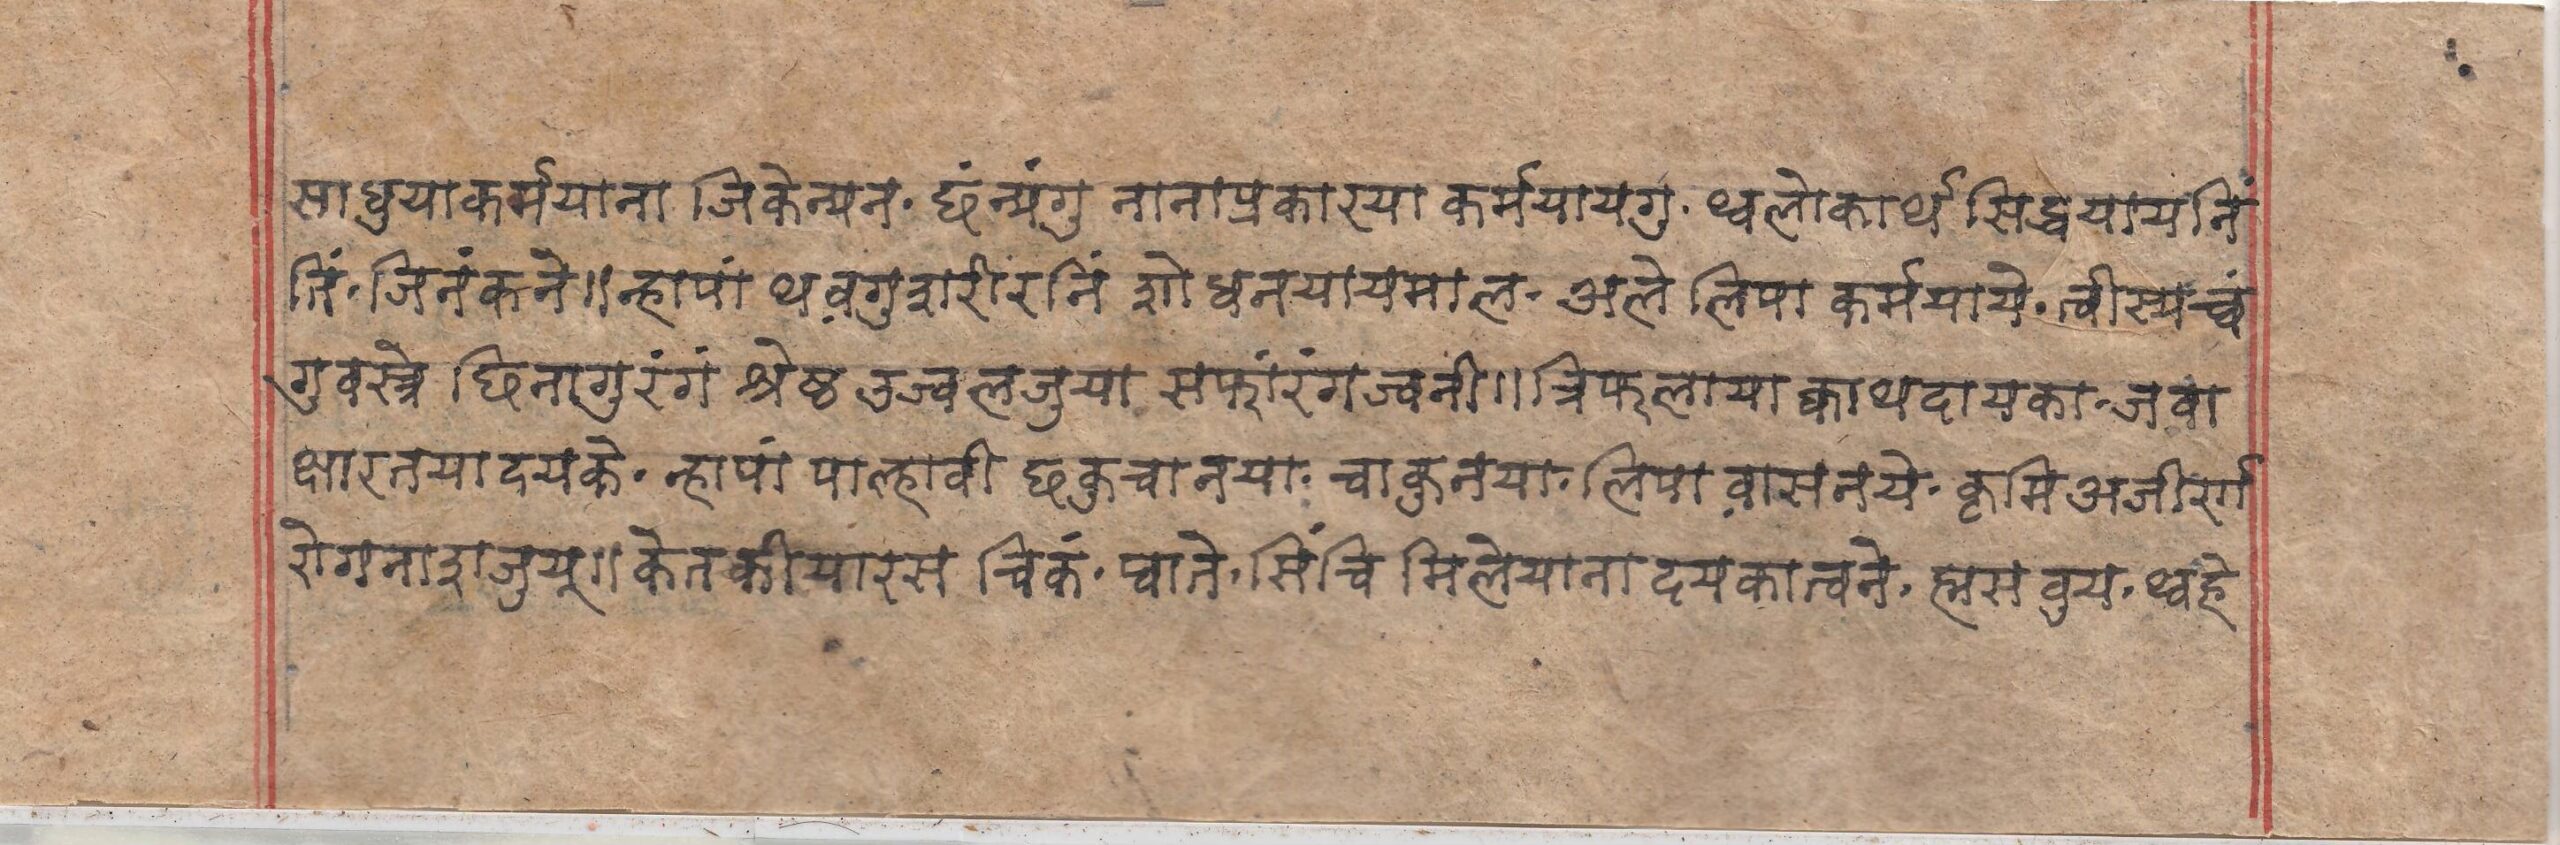 साधुयाकर्मयाना जिकेन्यन· छंन्यंगु नानाप्रकारया कर्मयायगु· थ्वलोकार्थ सिद्धयायनिं
तिं· जिनंकने॥ न्हापां थव़गुशरीरनिं शोधनयायमाल· अले लिपा कर्मयाये· त्वीस्यच्वं
गुवस्त्रे छिनागुरंगं श्रेष्ठ उज्वलजुया सफांरंगज्वनी॥ त्रिफलाया क्वाथदायका· जवा
क्षारनयादयके· न्हापां पाल्हावी छकुचानया· चाकुनया· लिपा व़ासनये· कृमिअजीरर्ग
रोगनाशजुयू॥ केतकीयारस चिकं· प्वाते· सिंचि मिलेयाना दयकात्वने· ह्मस वुय· थ्वहे